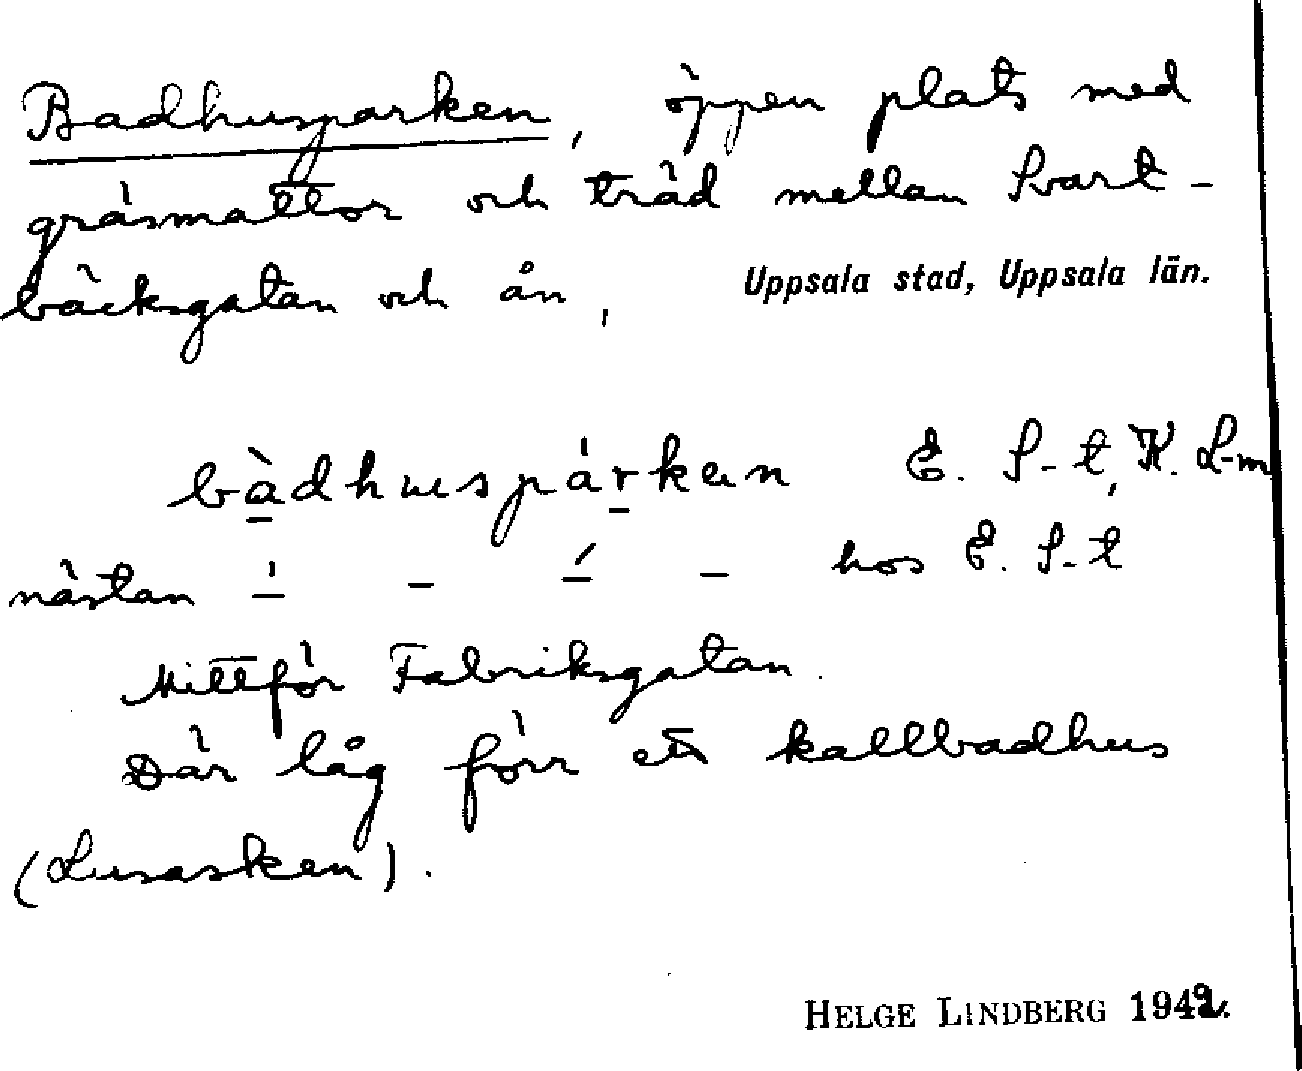 Badhusparken, öppen plats med
gräsmattor och träd mellan Svart-
bäcksgatan och ån, Uppsala stad, Uppsala län.
bàdhuspárken E. S-t, K. L-m
nästan – – – – hos E. S-t
Mittför Fabriksgatan.
Där låg förr ett kallbadhus
(Lusasken).
HELGE LINDBERG